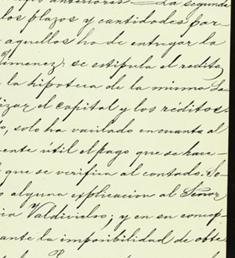 anteriores. La segunda
los plazos y cantidades por
aquellos ha de entregar la
Jimenez, se estipula el redito,
la hipoteca de la misma
el capital y los réditos.
solo ha variado en cuanto al
ente útil el pago que se hace
que se verifica al contado.
alguna explicacion al Señor
Valdivielso; y en su concep-
ante la imposibilidad de obte-